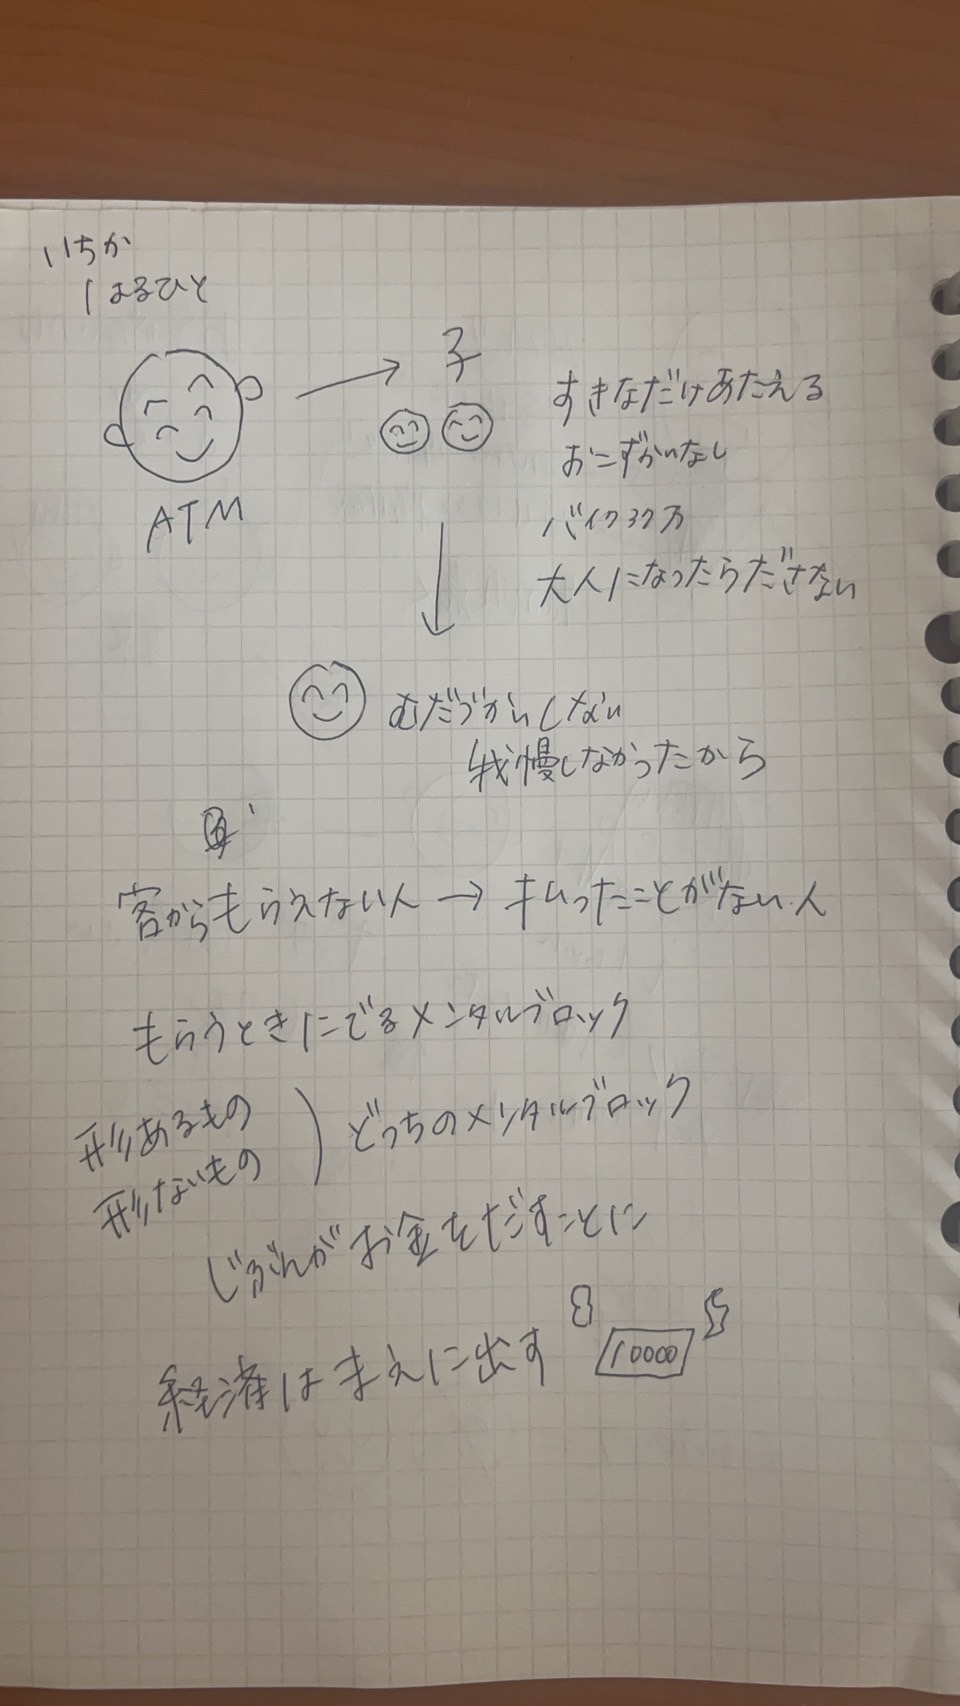 いちか
はるひと
子
ATM
すきなだけあたえる
おこずかいなし
バイク37万
大人になったらださない
むだづかいしない
我慢しなかったから
客からもらえない人 → 払ったことがない人
もらうときにでるメンタルブロック
形あるもの
形ないもの
どっちのメンタルブロック
じぶんがお金をだすことに
経済はまえに出す
10000